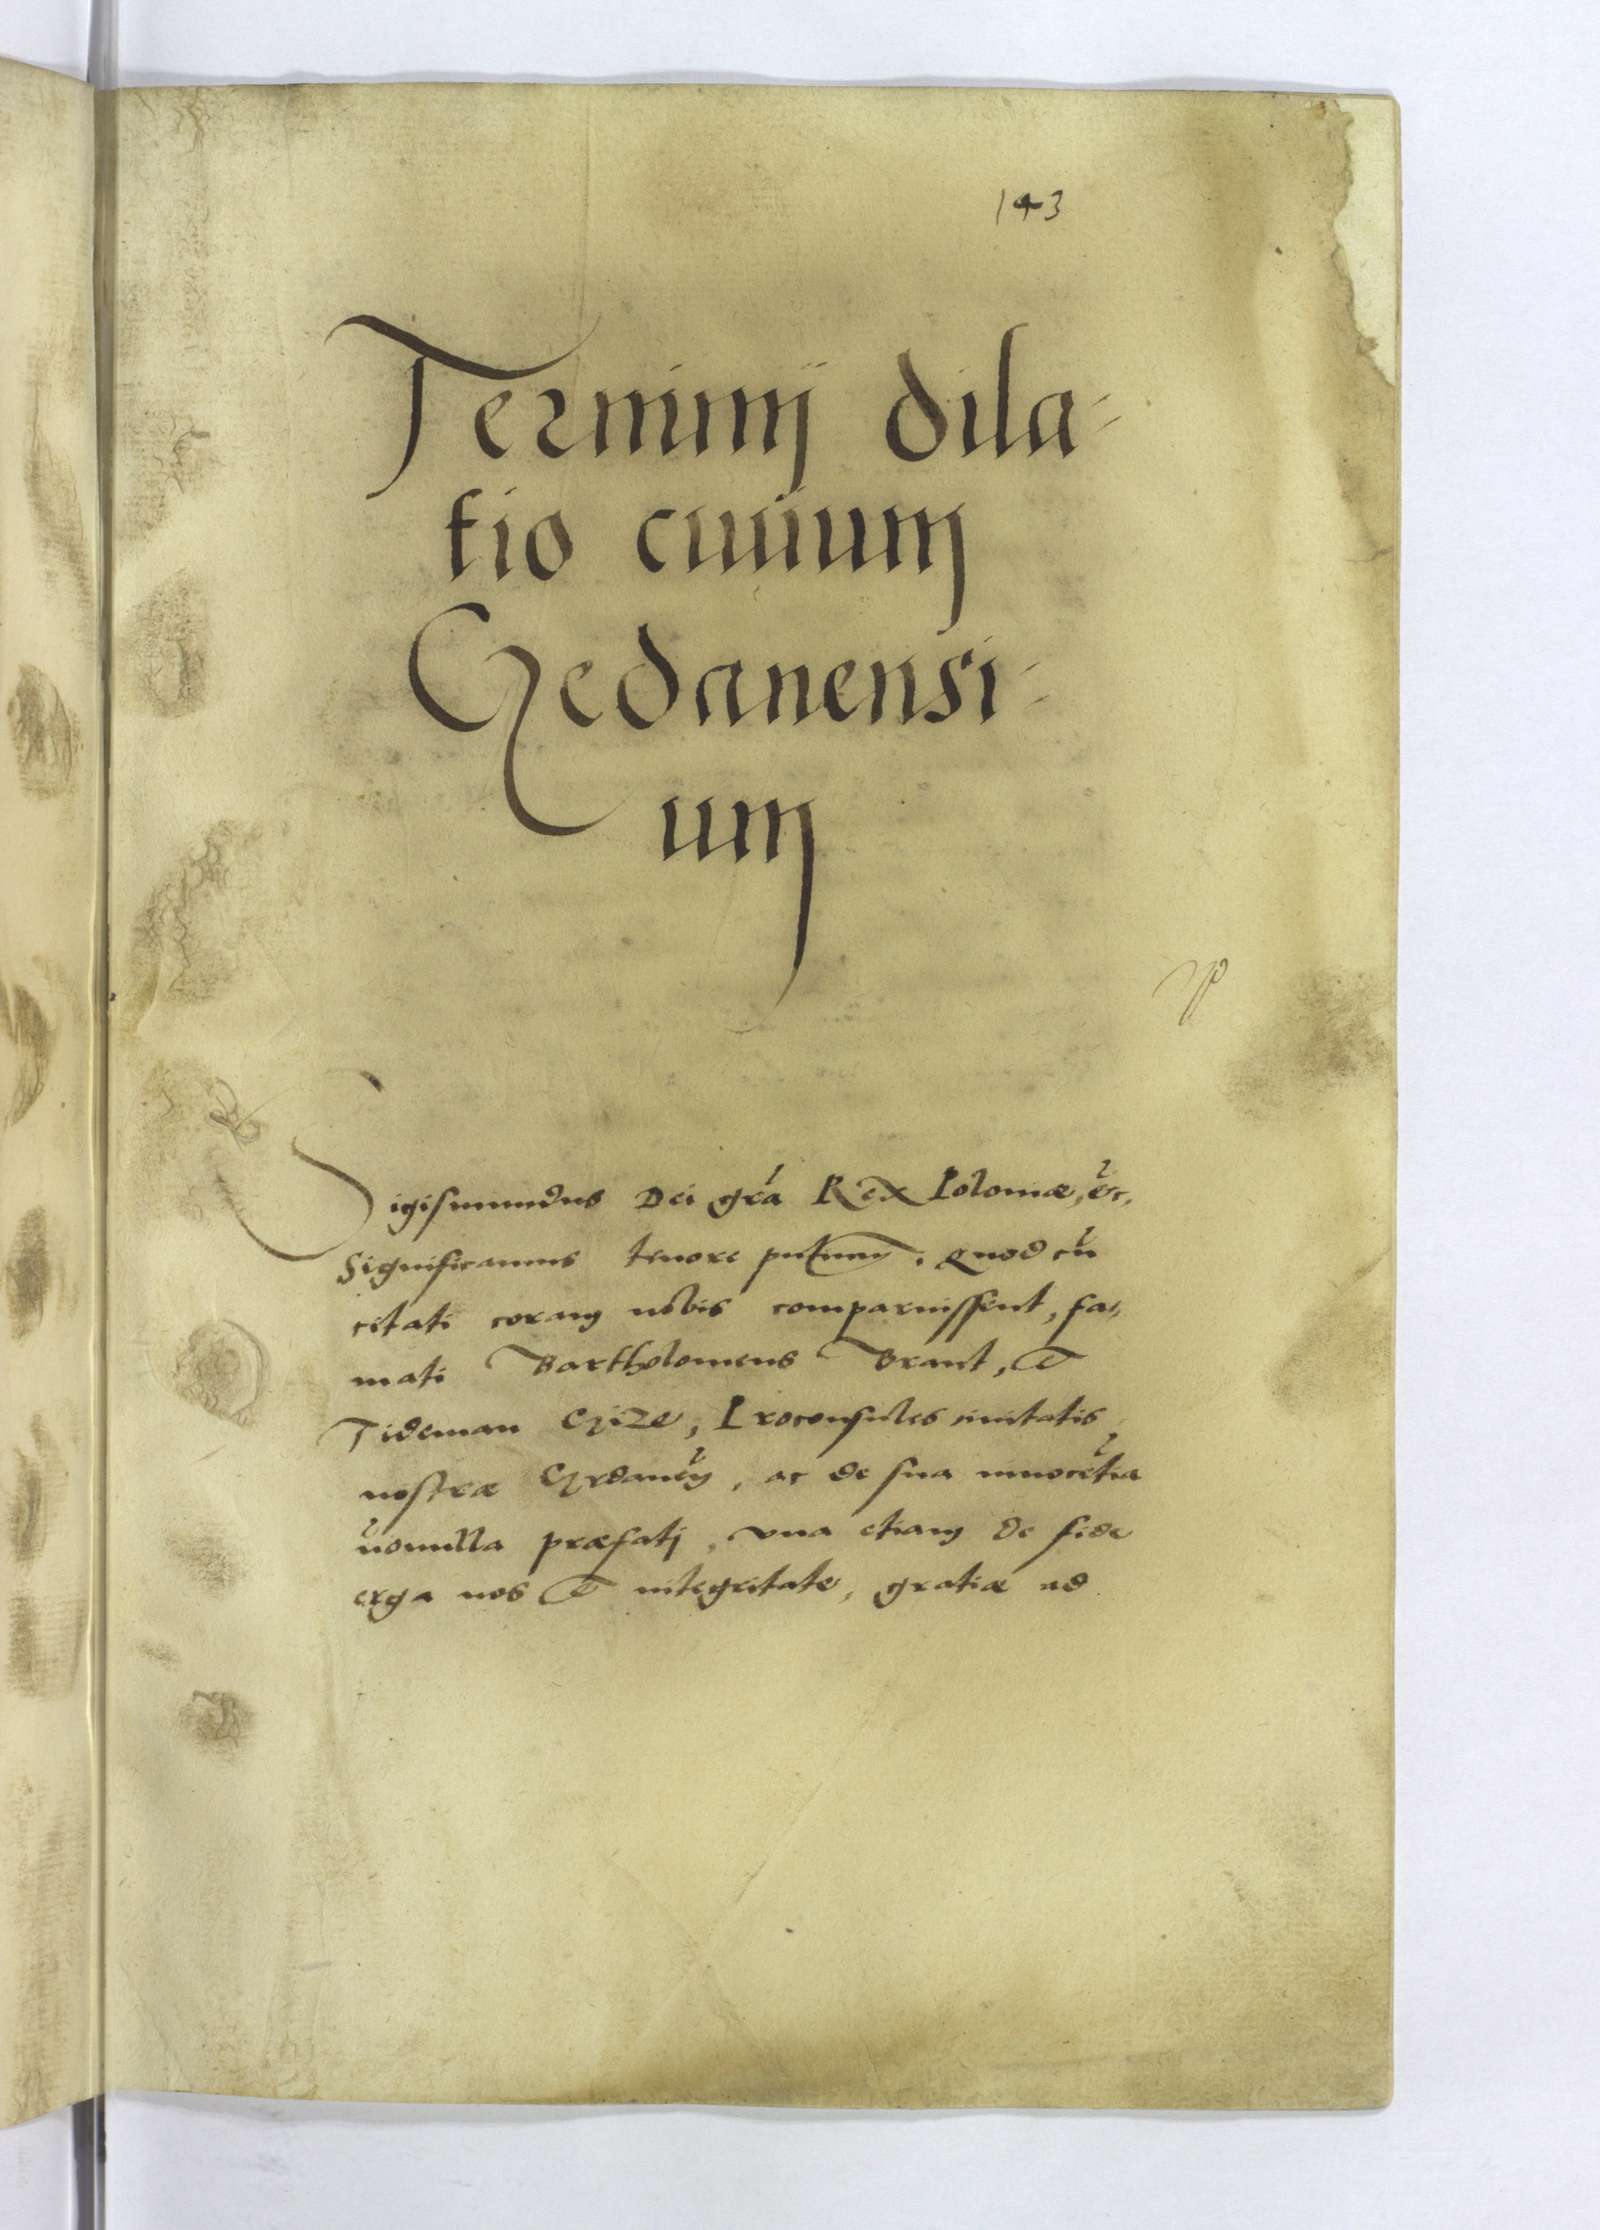 143
Terminij dila-
tio ciuium
Gedanensi-
um
Sigismundus Dei gra Rex Poloniæ, etc.
Significamus tenore pntium. Quod cu
citati coram nobis comparuissent, fa-
mati Bartholomeus Brant, &
Tideman Gize, Proconsules ciuitatis
nostræ Gedaneñ, ac de sua innocetia
nonulla præfati, vna etiam de fide
erga nos & integritate, gratiæ ad